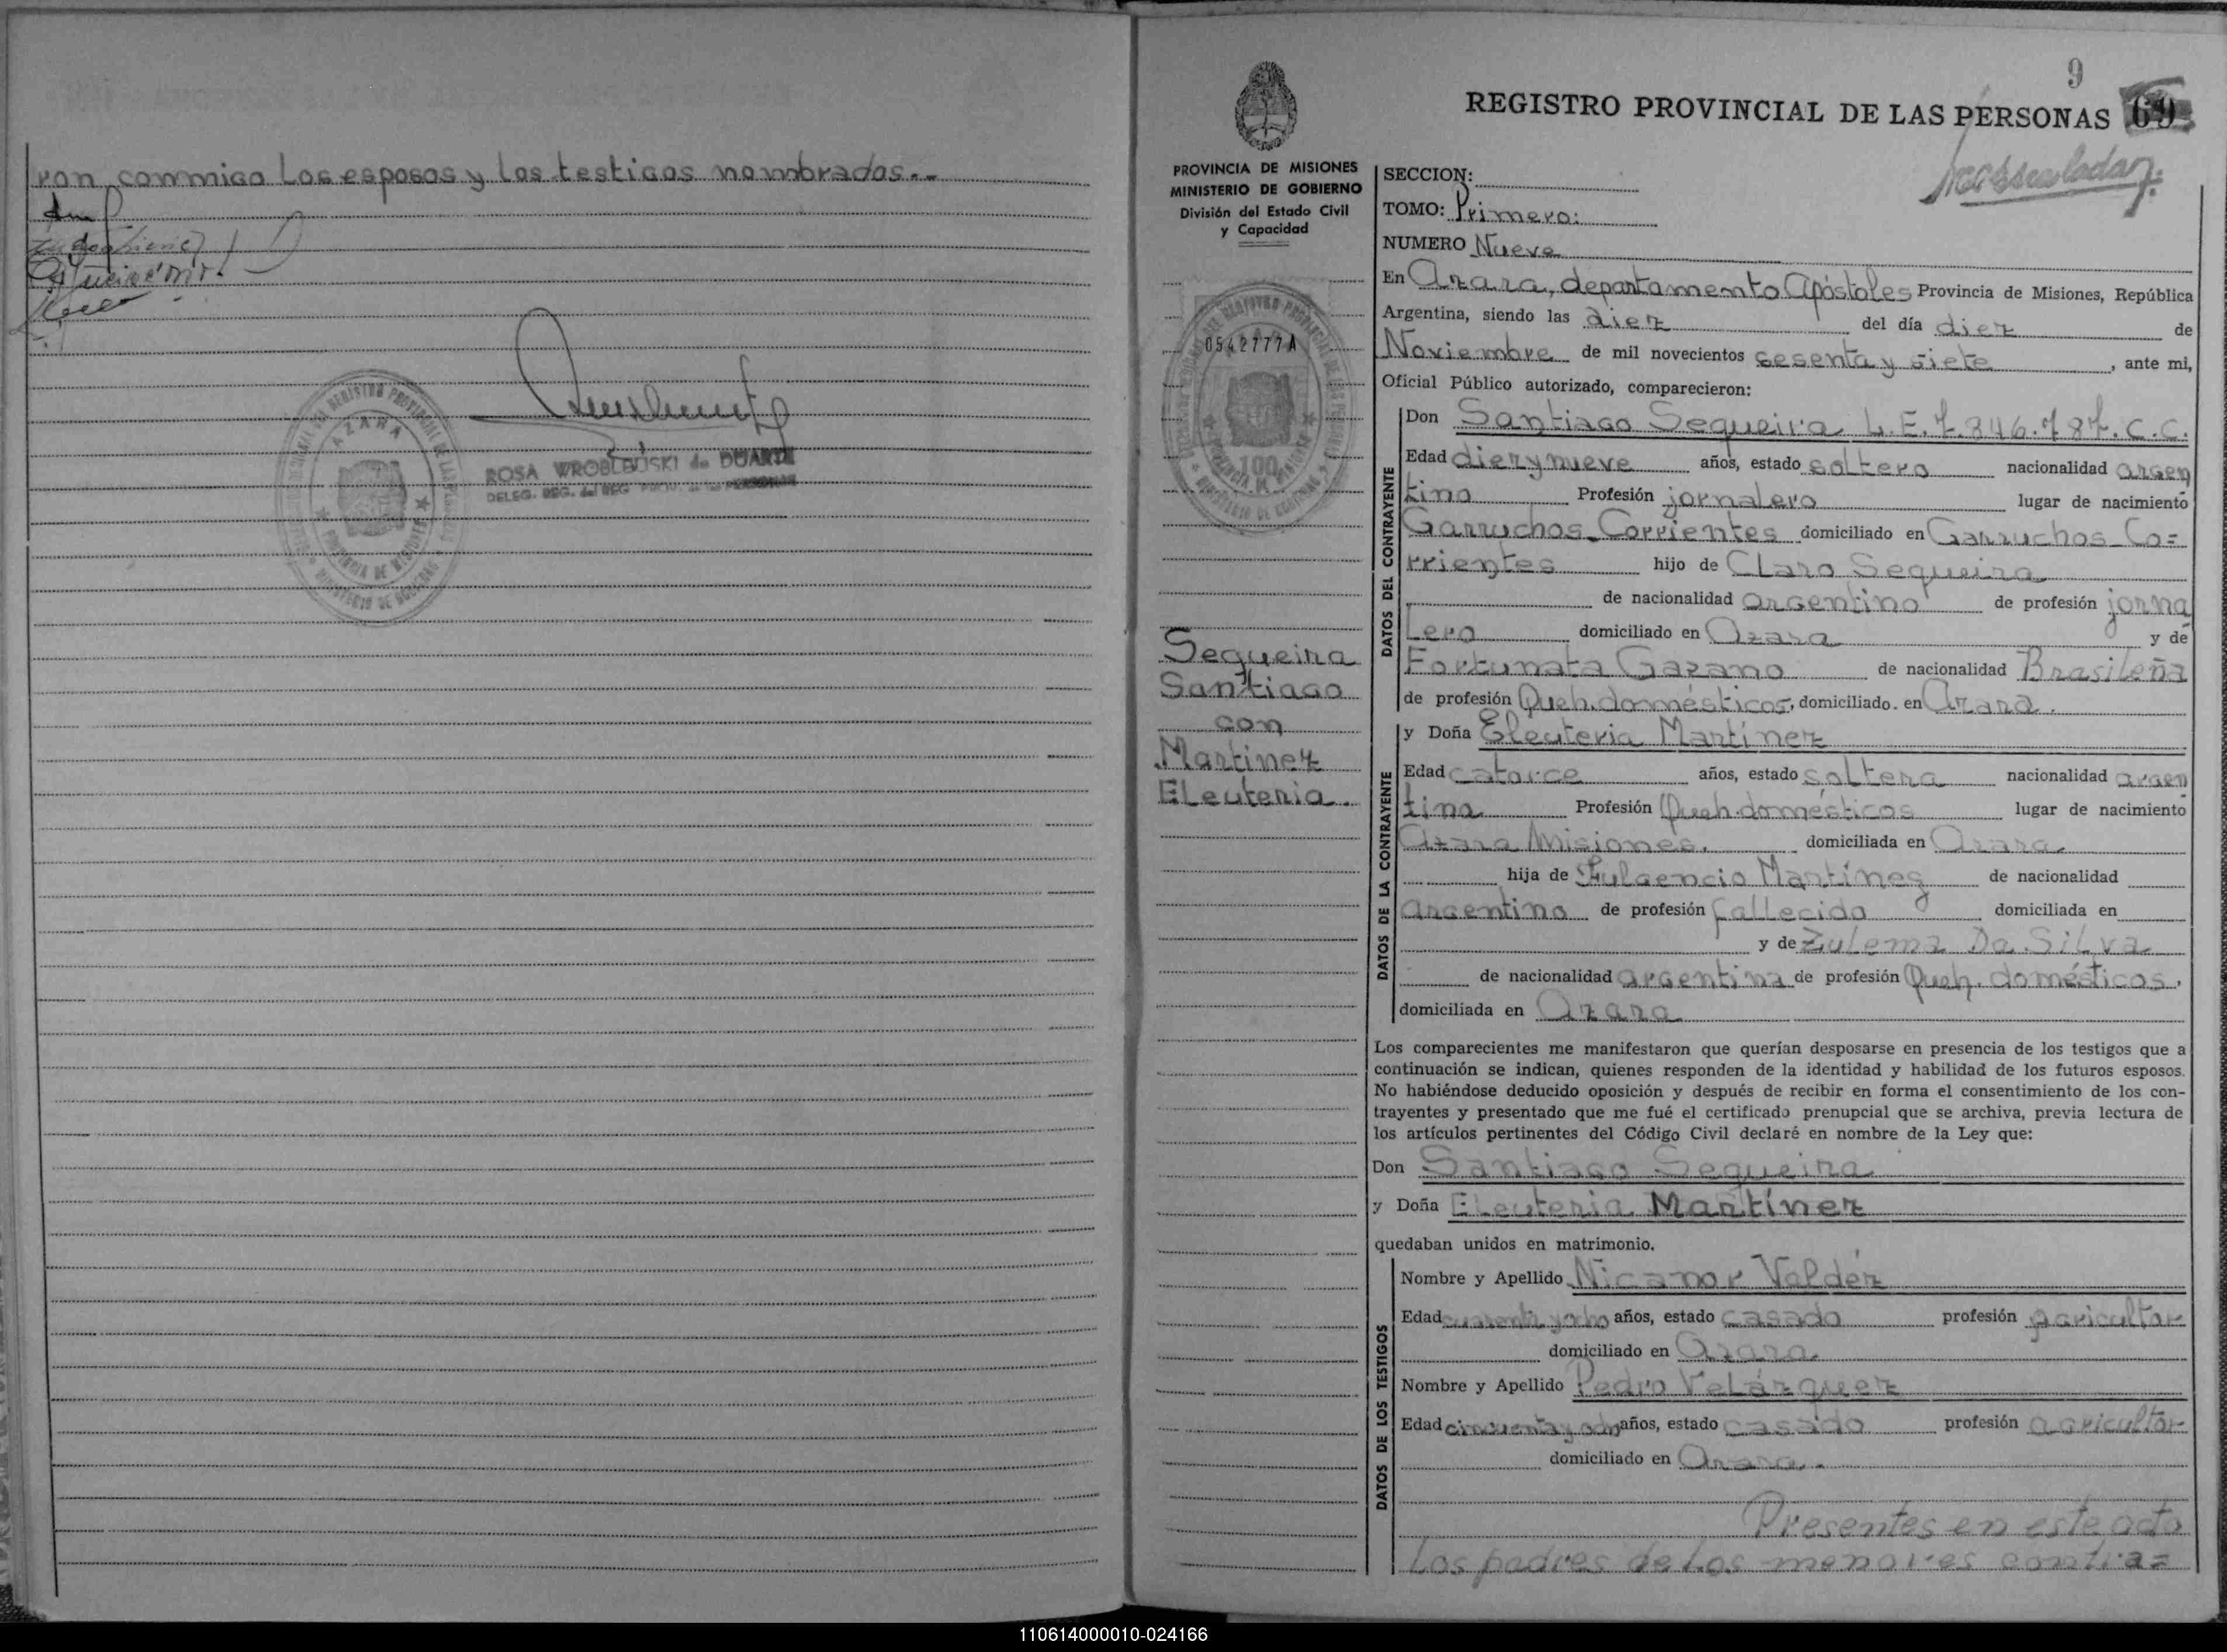 ron conmigo los esposos y los testigos nombrados.--
REGISTRO PROVINCIAL
AZARA
PROVINCIA DE MISIONES
MINISTERIO DE GOBIERNO
ROSA WROBLEUSKI de DUARTE
DELEG. REG. del REG. PROV. de las PERSONAS
9
REGISTRO PROVINCIAL DE LAS PERSONAS 69
PROVINCIA DE MISIONES
MINISTERIO DE GOBIERNO
División del Estado Civil
y Capacidad
0542777A
100
Sequeira
Santiago
con
Martinez
Eleuteria.
SECCION:
TOMO: Primero:
NUMERO Nueve
En Azara, departamento Apóstoles Provincia de Misiones, República
Argentina, siendo las diez del día diez de
Noviembre de mil novecientos sesenta y siete, ante mi,
Oficial Público autorizado, comparecieron:
DATOS DEL CONTRAYENTE
Don Santiago Sequeira L.E.7.846.787.C.C.
Edad diez y nueve años, estado soltero nacionalidad argen
tino Profesión jornalero lugar de nacimiento
Garruchos-Corrientes domiciliado en Garruchos-Co=
rrientes hijo de Claro Sequeira
de nacionalidad argentino de profesión jorna
lero domiciliado en Azara y de
Fortunata Gazano de nacionalidad Brasileña
de profesión Queh.domésticos, domiciliado. en Azara.
DATOS DE LA CONTRAYENTE
y Doña Eleuteria Martínez
Edad catorce años, estado soltera nacionalidad argen
tina Profesión Queh.domésticos lugar de nacimiento
Azara Misiones. domiciliada en Azara.
hija de Fulgencio Martínez de nacionalidad
argentino de profesión fallecido domiciliada en
y de Zulema Da Silva
de nacionalidad argentina de profesión Queh. domésticos,
domiciliada en Azara
Los comparecientes me manifestaron que querían desposarse en presencia de los testigos que a
continuación se indican, quienes responden de la identidad y habilidad de los futuros esposos.
No habiéndose deducido oposición y después de recibir en forma el consentimiento de los con-
trayentes y presentado que me fué el certificado prenupcial que se archiva, previa lectura de
los artículos pertinentes del Código Civil declaré en nombre de la Ley que:
Don Santiago Sequeira
y Doña Eleuteria Martínez
quedaban unidos en matrimonio.
DATOS DE LOS TESTIGOS
Nombre y Apellido Nicanor Valdéz
Edad cuarenta y ocho años, estado casado profesión agricultor
domiciliado en Azara
Nombre y Apellido Pedro Velázquez
Edad cincuenta y ocho años, estado casado profesión agricultor
domiciliado en Azara.
Presentes en este acto
los padres de los menores contra=
110614000010-024166